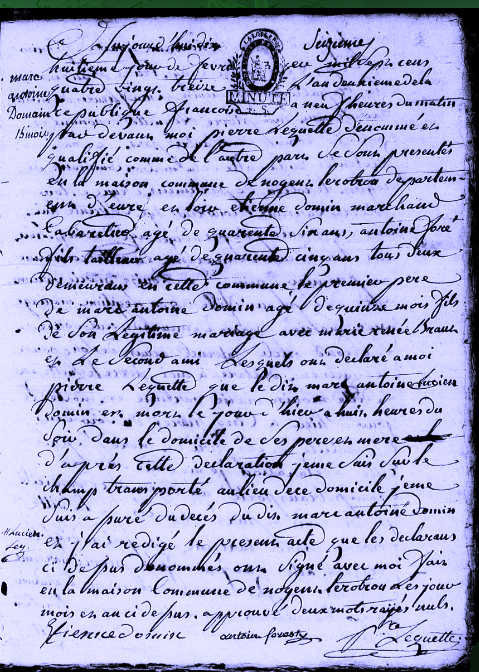 aujourd'hui dix Seizieme
huitieme jour de fevrier mil Sept cens
marc
antoine
Domain
15 mois
quatre vingt treize L'an deuxieme de la
MINUTE
Republique francoise a neuf heures du matin
par devant moi pierre Lequette denommé et
qualifié comme de l'autre part Se Sont presentés
en la maison commune de nogent lerotrou departem-
ent d'eure et Loir etienne domin marchand
Cabaretier agé de quarente Six ans, antoine foré
fils tailleur agé de quarente cinq ans tous deux
demeurant en cette commune le premier pere
de marc antoine domin agé de quinze mois fils
de Son Legitime mariage avec marie renée
et Le Second ami Lesquels ont declaré a moi
pierre Lequette que ledit marc antoine Lucien
domin est mort le jour d'hier a huit heures du
Soir dans le domicile de Ses pere et mere
d'aprés cette declaration je me Suis Sur le
champ transporté au lieu de ce domicile je me
Suis assuré du decés dudit marc antoine domin
Lucien
et j'ai redigé le present acte que les declarans
ci de sus denommés ont Signé avec moi fait
en la maison Commune de nogent lerotrou Les jour
mois et an ci de sus. approuvé deux mots rayés nuls.
Etienne domin antoine Lequette